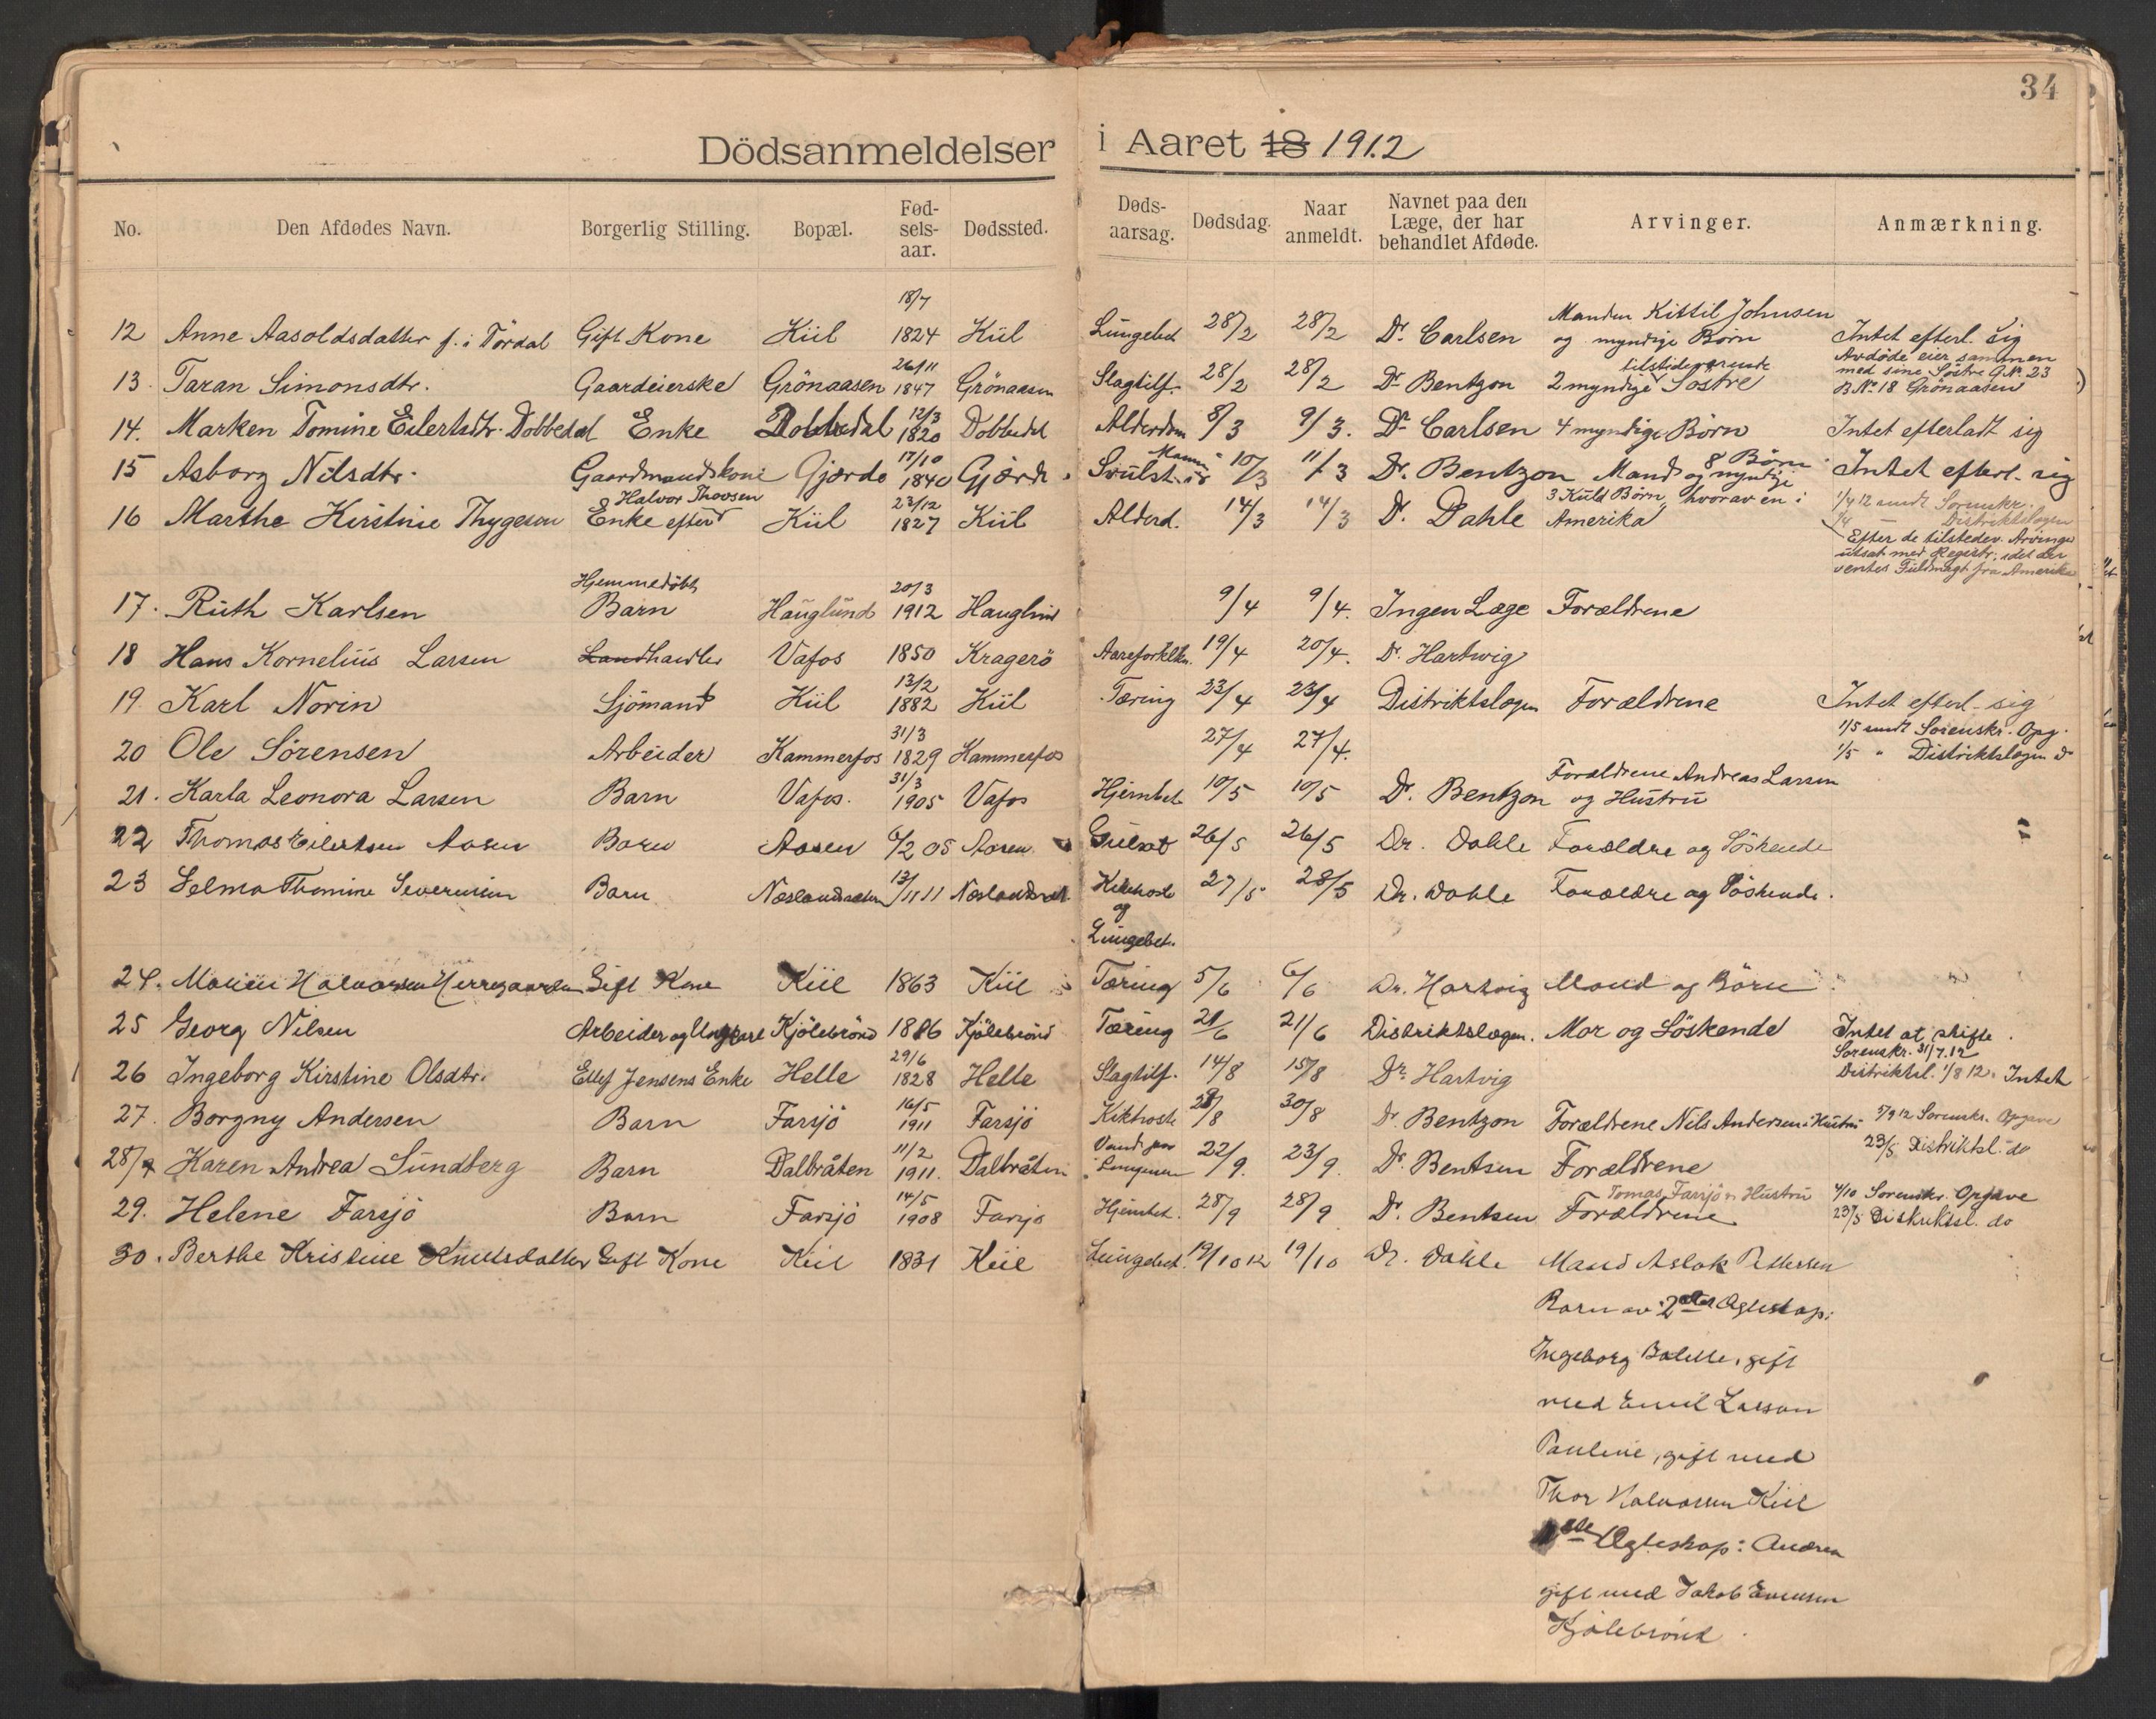 34
Dödsanmeldelser i Aaret 18 1912
No. Den Afdødes Navn. Borgerlig Stilling. Bopæl. Fød-sels-aar. Dødssted. Døds-aarsag. Dødsdag. Naar anmeldt. Navnet paa den Læge, der har behandlet Afdøde. Arvinger. Anmærkning.
12 Anne Aasoldsdatter f. i Tördal Gift Kone Kiil 18/7 1824 Kiil Lungebet 28/2 28/2 Dr. Carlsen Manden Kittil Johnsen og myndige Börn Intet efterl. sig
13. Taran Simonsdtr. Gaardeierske Grönaasen 26/11 1847 Grönaasen Slagtilf. 28/2 28/2 Dr Bentzon 2 myndige tilstedeværende Söstre Avdöde eier sammen med sine Söstre G.No. 23 B No 18 Grönaasen
14. Marken Tomine Eilertsdtr. Dobbedal Enke Dobbedal 12/3 1820 Dobbedal Alderdom 8/3 9/3. Dr Carlsen 4 myndige Börn Intet efterladt sig
15 Asborg Nilsdtr. Gaardmandskone Gjærde 17/10 1840 Gjærde Svulst i 10/3 11/3 Dr. Bentzon Mand og 8 Börn myndige Intet efterl. sig
16 Marthe Kirstine Thygesen Enke efter Halvor Thovsen Kiil 23/12 1827 Kiil Alderd. 14/3 14/3 Dr. Dahle 3 Kuld Börn, hvorav en i Amerika 1/4 12 sendt Sorenskr. 1/4 — Distriktslægen
Efter de tilstedev. Arvinger utsat med Registr. idet der ventes Fuldmagt fra Amerika
17. Ruth Karlsen Hjemmedöbt Barn Hauglund 20/3 1912 Hauglund 9/4 9/4. Ingen Læge Forældrene
18 Hans Kornelius Larsen Landhandler Vafos 1850 Kragerö Aareforklkn. 19/4 20/4. Dr. Hartwig
19. Karl Norin Sjömand Kiil 13/2 1882 Kiil Tæring 23/4 23/4 Distriktslægen Forældrene Intet efterl. sig
20 Ole Sörensen Arbeider Kammerfos 31/3 1829 Kammerfos 27/4 27/4. 1/5 sendt Sorenskr. Opg. 1/5 " Distriktslægen do
21. Karla Leonora Larsen Barn Vafos. 31/3 1905 Vafos Hjernbet 10/5 10/5 Dr. Bentzon Forældrene Andreas Larsen og Hustru
22 Thomas Eilertsen Aasen Barn Aasen 6/2 05 Aasen 26/5 26/5 Dr. Dahle Forældre og Söskende
23 Selma Thomine Severinsen Barn 13/11 11 Kikhoste og Lungebet. 27/5 28/5 Dr. Dahle Forældre og Söskende.
24. Halvorsen Herregaarden Gift Kone Kiil 1863 Kiil Tæring 5/6 6/6 Dr. Hartvig Mand og Börn
25 Georg Nilsen Arbeider og Ungkarl Kjölebrönd 1886 Kjölebrönd Tæring 21/6 21/6 Distriktslægen. Mor og Söskende Intet at skifte.
26 Ingeborg Kirstine Olsdtr. Ellef Jensens Enke Helle 29/6 1828 Helle Slagtilf. 14/8 15/8 Dr Hartvig Sorenskr. 31/7.12 Distriktsl. 1/8 12. Intet
27. Borgny Andersen Barn Farsjö 16/5 1911 Farsjö Kikhoste 29/8 30/8 Dr Bentzon Forældrene Nils Andersen o Hustru 5/9 12 Sorenskr. Opgave
28/9 Karen Andrea Sundberg Barn Dalbråten 11/2 1911. Dalbråten Vand paa Lungerne 22/9. 23/9. Dr. Bentsen Forældrene 23/5 Distriktsl. do
29. Helene Farsjö Barn Farsjö 14/5 1908 Farsjö Hjernbet. 28/9 28/9 Dr. Bentsen Forældrene Tomas Farsjö o Hustru 4/10 Sorenskr. Opgave 23/5 Distriktsl. do
30. Berthe Kristine Knutsdatter Gift Kone Kiil 1831 Kiil Lungebet. 19/10 12 19/10 Dr. Dahle Mand Aslak Pettersen
Barn av 2det Ægteskap:
Ingeborg gift
med Emil Larson
Pauline, gift med
Thor Halvorsen Kiil
Ægteskap: Andrea
gift med Jakob Evensen
Kjölebrönd